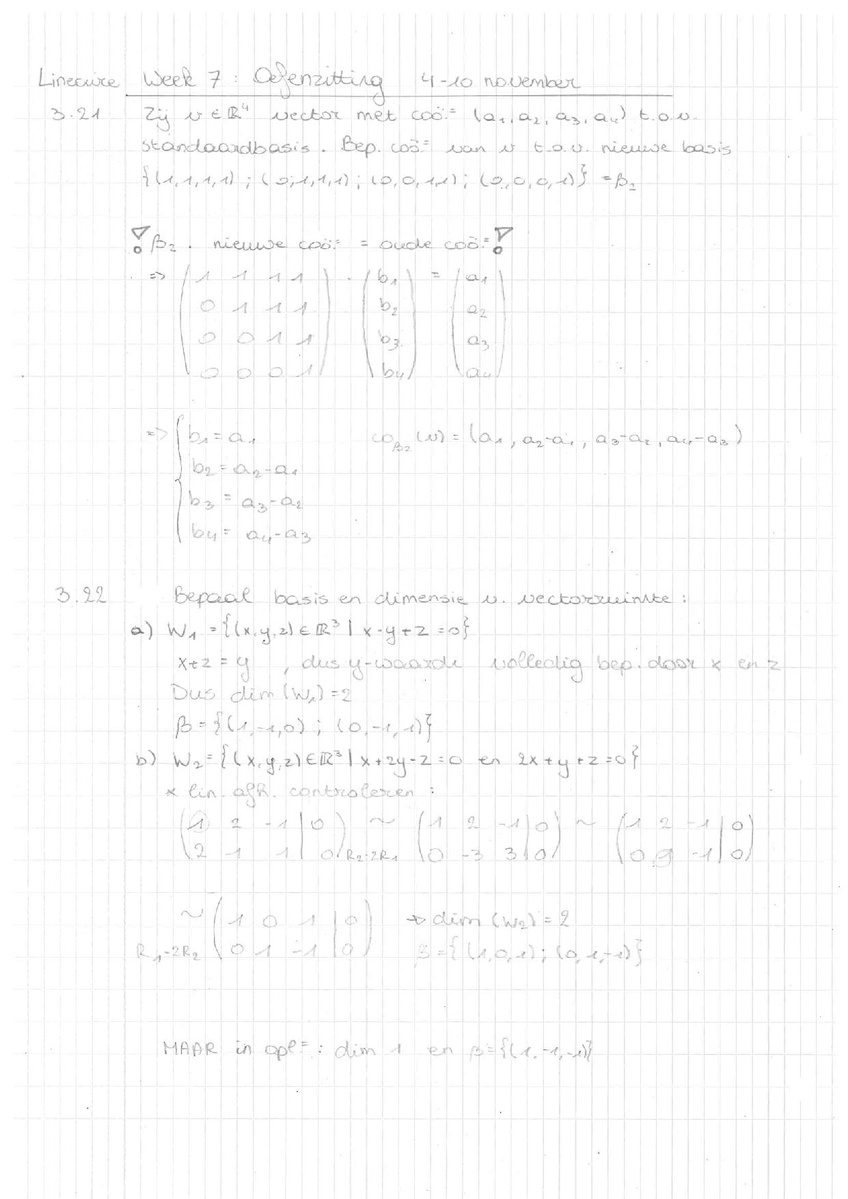 Lineaire Week 7 : Oefenzitting 4-10 november
3.21 Zij v ∈ ℝ⁴ vector met coö.= (a₁, a₂, a₃, a₄) t.o.v.
standaardbasis. Bep. coö.= van v t.o.v. nieuwe basis
{(1,1,1,1) ; (0,1,1,1) ; (0,0,1,1) ; (0,0,0,1)} = β₂
! β₂ . nieuwe coö.= = oude coö.= !
=> (1 1 1 1) . (b₁) = (a₁)
(0 1 1 1) (b₂) (a₂)
(0 0 1 1) (b₃) (a₃)
(0 0 0 1) (b₄) (a₄)
=> { b₁ = a₁ co_β₂ (v) = (a₁, a₂-a₁, a₃-a₂, a₄-a₃)
b₂ = a₂-a₁
b₃ = a₃-a₂
b₄ = a₄-a₃
3.22 Bepaal basis en dimensie v. vectorruimte :
a) W₁ = {(x,y,z) ∈ ℝ³ | x-y+z=0}
x+z = y , dus y-waarde volledig bep. door x en z
Dus dim (W₁) = 2
β = {(1,-1,0) ; (0,-1,1)}
b) W₂ = {(x,y,z) ∈ ℝ³ | x+2y-z=0 en 2x+y+z=0}
* lin. afh. controleren :
(1 2 -1 | 0) ~ (1 2 -1 | 0) ~ (1 2 -1 | 0)
(2 1 1 | 0) R₂-2R₁ (0 -3 3 | 0) (0 -1 | 0)
~ (1 0 1 | 0) → dim (W₂) = 2
R₁-2R₂ (0 1 -1 | 0) β = {(1,0,1) ; (0,1,-1)}
MAAR in opl= : dim 1 en β = {(1,-1,-1)}